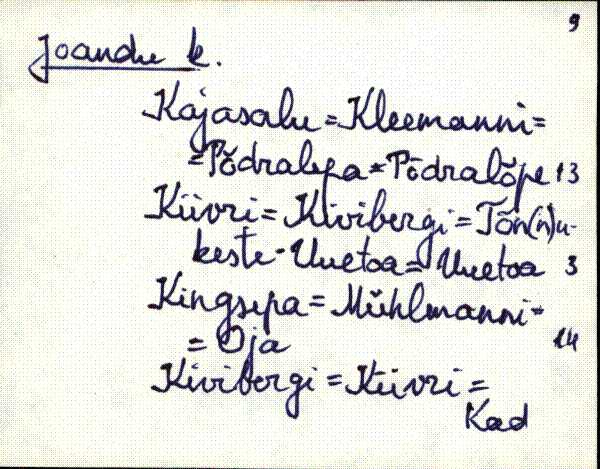 9
Joandu k.
Kajasalu = Kleemanni =
= Põdralepa = Põdralõpe 13
Kiivri = Kivibergi = Tõn(n)u-
keste-Uuetoa = Uuetoa 3
Kingsepa = Mühlmanni =
= Oja 14
Kivibergi = Kiivri =
Kad